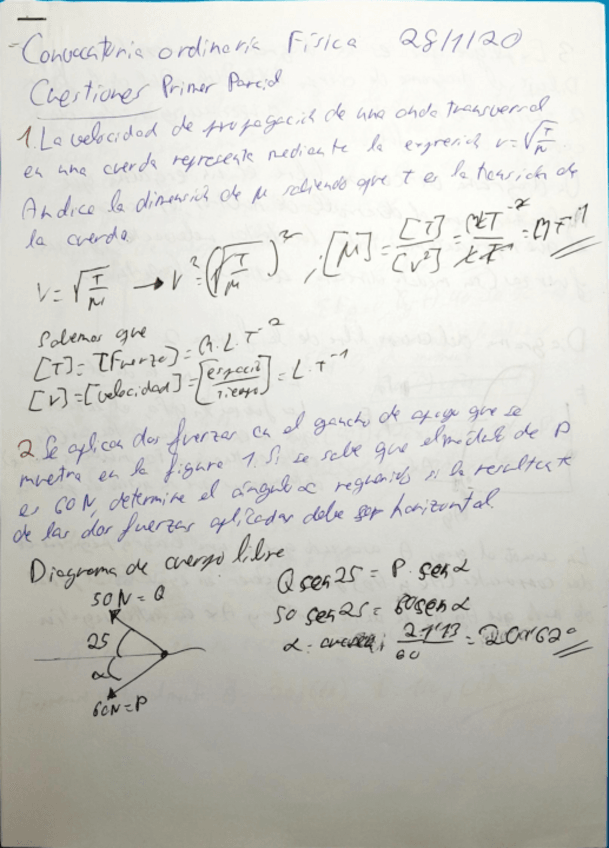 - Convocatoria ordinaria Física 28/1/20
Cuestiones Primer Parcial
1. La velocidad de propagación de una onda transversal
en una cuerda representa mediante la expresión v = √(T/μ)
Indica la dimensión de μ sabiendo que T es la tensión de
la cuerda
V = √(T/μ) → V² = (√(T/μ))² ; [μ] = [T]/[V²] =
Sabemos que
[T] = [Fuerza] = M.L.T⁻²
[V] = [velocidad] = [espacio/tiempo] = L.T⁻¹
2. Se aplican dos fuerzas en el gancho de apoyo que se
muestra en la figura 1. Si se sabe que el módulo de P
es 60 N, determine el ángulo α requerido si la resultante
de las dos fuerzas aplicadas debe ser horizontal.
Diagrama de cuerpo libre
50N = Q
25
α
60N = P
Q sen 25 = P. sen α
50 sen 25 = 60 sen α